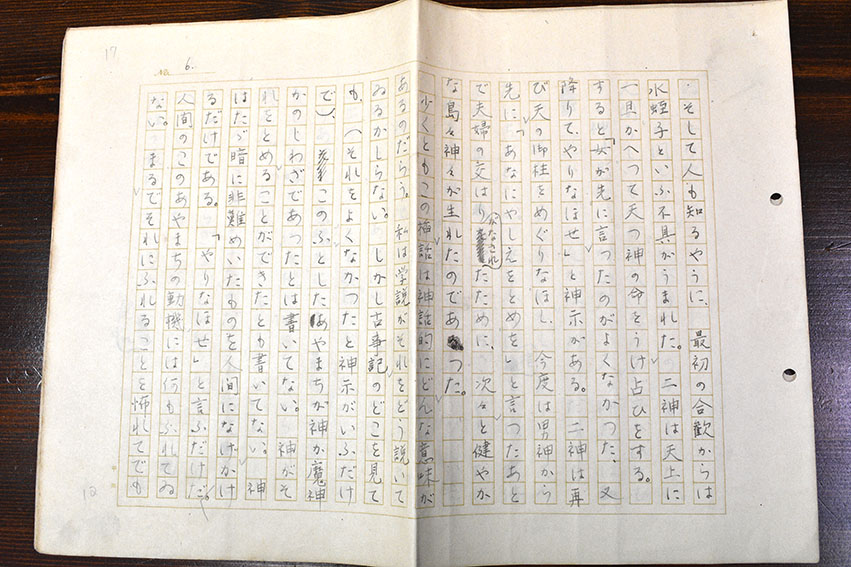 17
No. 6.
そして人も知るやうに、最初の合歓からは
水蛭子といふ不具がうまれた。二神は天上に
一旦かへつて天つ神の命をうけ占ひをする。
すると「女が先に言つたのがよくなかつた、又
降りて、やりなほせ」と神示がある。二神は再
び天の御柱をめぐりなほし、今度は男神から
先に「あなにやしえをとめを」と言つたあと
で夫婦の交はりがなされたために、次々と健やか
な島々神々が生れたのであつた。
少くともこの神話は神話的にどんな意味が
あるのだらう。私は学説がそれをどう説いて
ゐるかしらない。しかし古事記のどこを見て
も、(それをよくなかつたと神示がいふだけ
で)、このふとしたあやまちが神か魔神
かのしわざであつたとは書いてない。神がそ
れをとめることができたとも書いてない。神
はたゞ暗に非難めいたものを人間になげかけ
るだけである。「やりなほせ」と言ふだけだ。
人間のこのあやまちの動機には何もふれてゐ
ない。まるでそれにふれることを怖れてでも
12